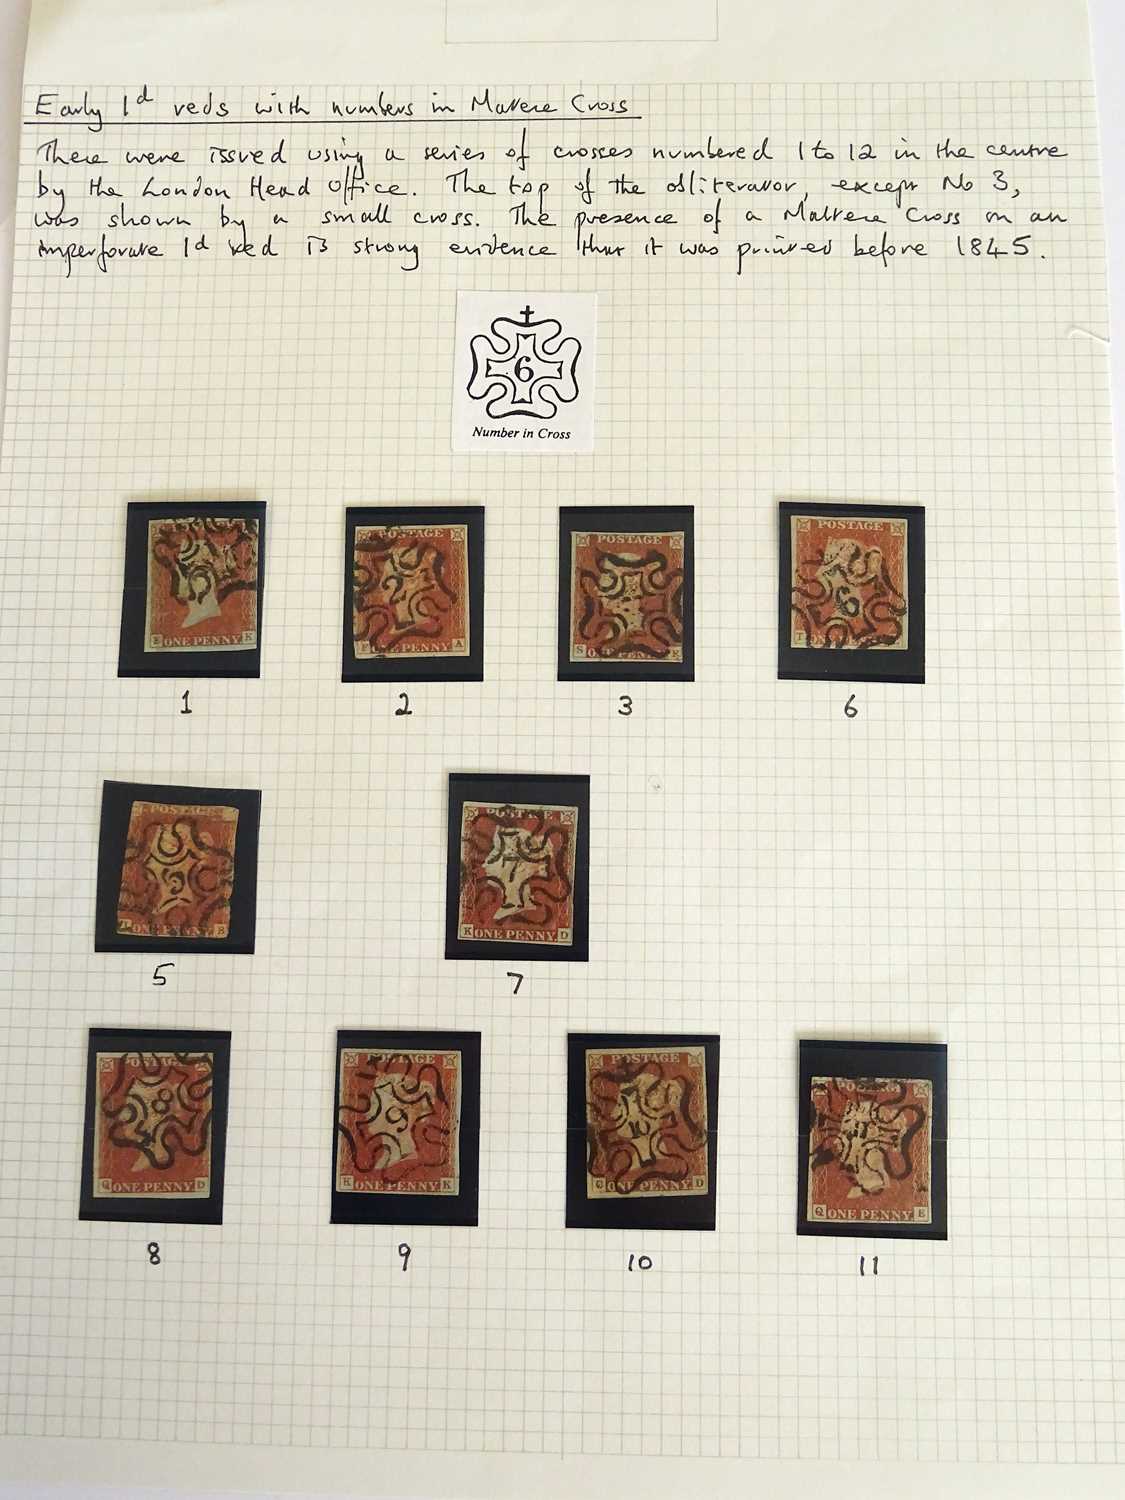 Early 1d reds with numbers in Maltese Cross
These were issued using a series of crosses numbered 1 to 12 in the centre
by the London Head Office. The top of the obliterator, except No 3,
was shown by a small cross. The presence of a Maltese Cross on an
imperforate 1d red is strong evidence that it was printed before 1845.
6
Number in Cross
E ONE PENNY K
POSTAGE
2
PENNY A
POSTAGE
S E
POSTAGE
6
T
1 2 3 6
POSTAGE
5
ONE PENNY B
POSTAGE
7
K ONE PENNY D
5 7
POSTAGE
8
Q ONE PENNY D
POSTAGE
9
K ONE PENNY K
POSTAGE
10
ONE PENNY D
POSTAGE
11
Q ONE PENNY E
8 9 10 11